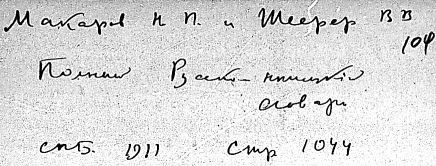 Макаров Н П. и Шеерер В В
104
Полный Руско-немецкий
словарь
СПБ. 1911 стр 1044